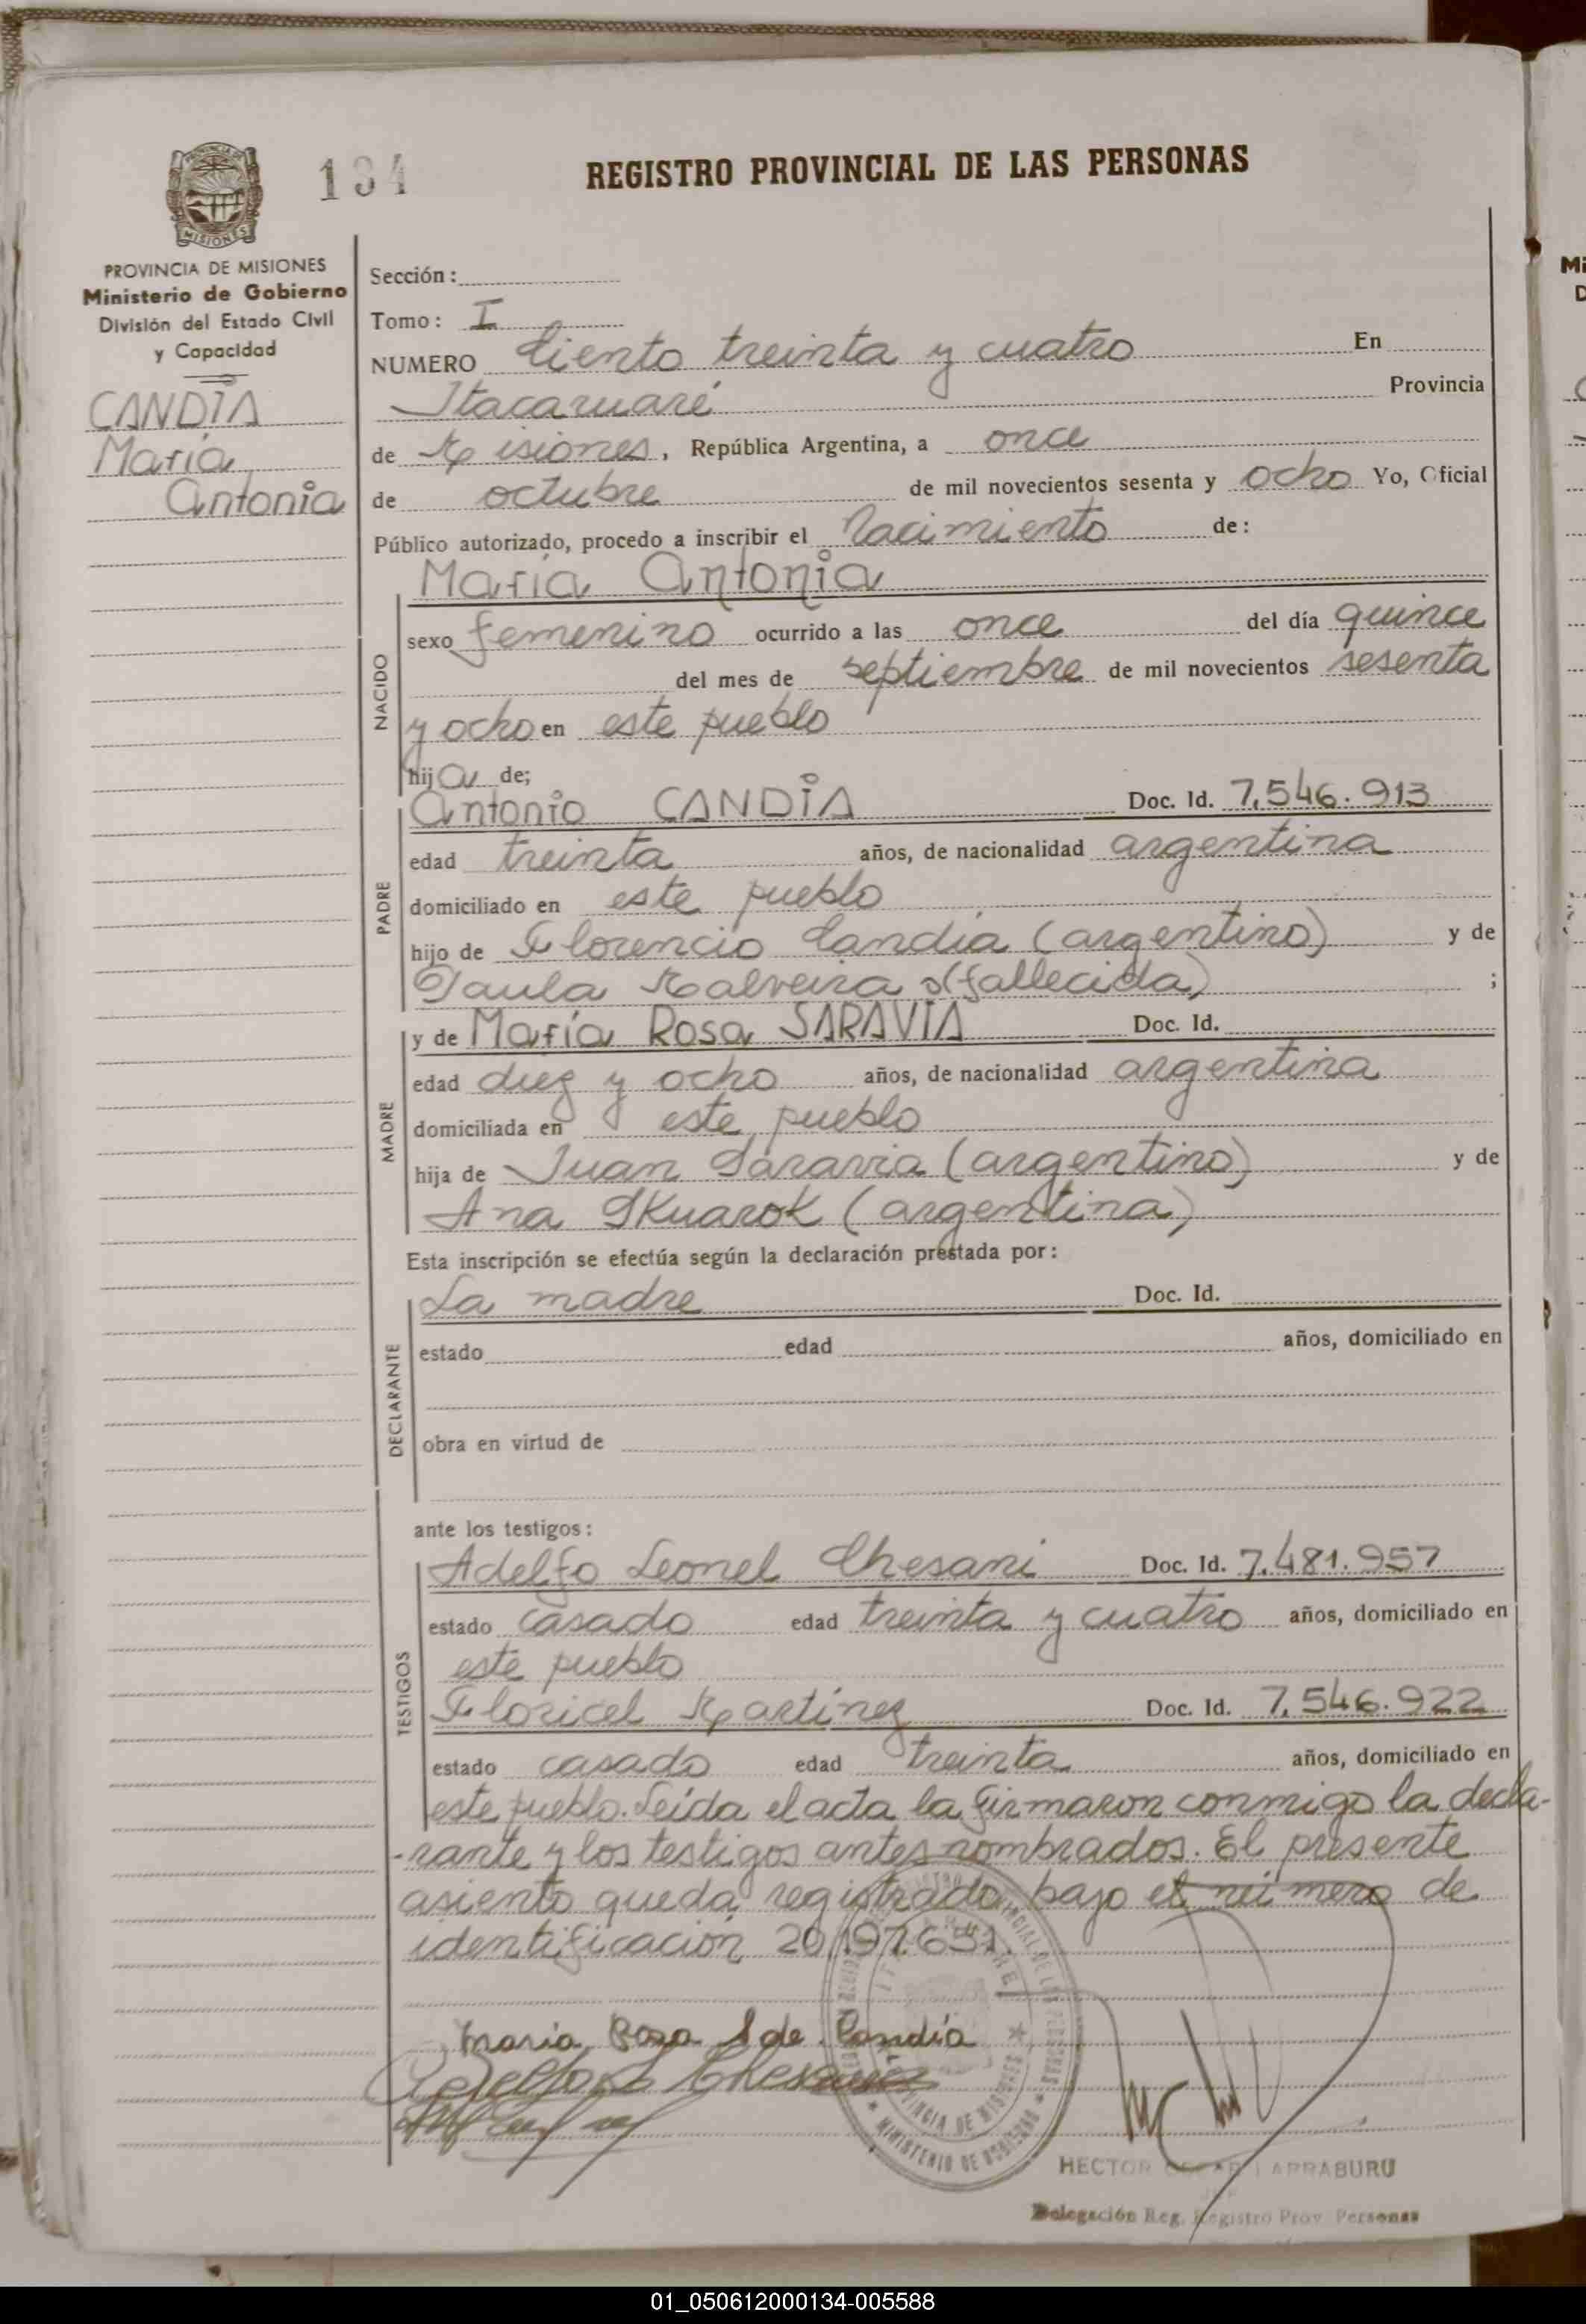 134
REGISTRO PROVINCIAL DE LAS PERSONAS
MISIONES
PROVINCIA DE MISIONES
Ministerio de Gobierno
División del Estado Civil
y Capacidad
CANDIA
María
Antonia
Sección:
Tomo: I
NUMERO Ciento treinta y cuatro En
Itacaruaré Provincia
de Misiones, República Argentina, a once
de octubre de mil novecientos sesenta y ocho Yo, Oficial
Público autorizado, procedo a inscribir el Nacimiento de:
María Antonia
NACIDO
sexo femenino ocurrido a las once del día quince
del mes de septiembre de mil novecientos sesenta
y ocho en este pueblo
hija de;
PADRE
Antonio CANDIA Doc. Id. 7.546.913
edad treinta años, de nacionalidad argentina
domiciliado en este pueblo
hijo de Florencio Candia (argentino) y de
Paula Malveira (fallecida) ;
MADRE
y de María Rosa SARAVIA Doc. Id.
edad diez y ocho años, de nacionalidad argentina
domiciliada en este pueblo
hija de Juan Saravia (argentino) y de
Ana Skuarok (argentina)
Esta inscripción se efectúa según la declaración prestada por:
DECLARANTE
La madre Doc. Id.
estado edad años, domiciliado en
obra en virtud de
ante los testigos:
TESTIGOS
Adelfo Leonel Chesani Doc. Id. 7.481.957
estado casado edad treinta y cuatro años, domiciliado en
este pueblo
Floricel Martínez Doc. Id. 7.546.922
estado casado edad treinta años, domiciliado en
este pueblo. Leída el acta la firmaron conmigo la decla-
-rante y los testigos antes nombrados. El presente
asiento queda registrado bajo el número de
identificación 20.197.651.
María Rosa S de Candia
HECTOR LARRABURU
Delegación Reg. Registro Prov. Personas
PROVINCIA DE MISIONES
MINISTERIO DE GOBIERNO
01_050612000134-005588